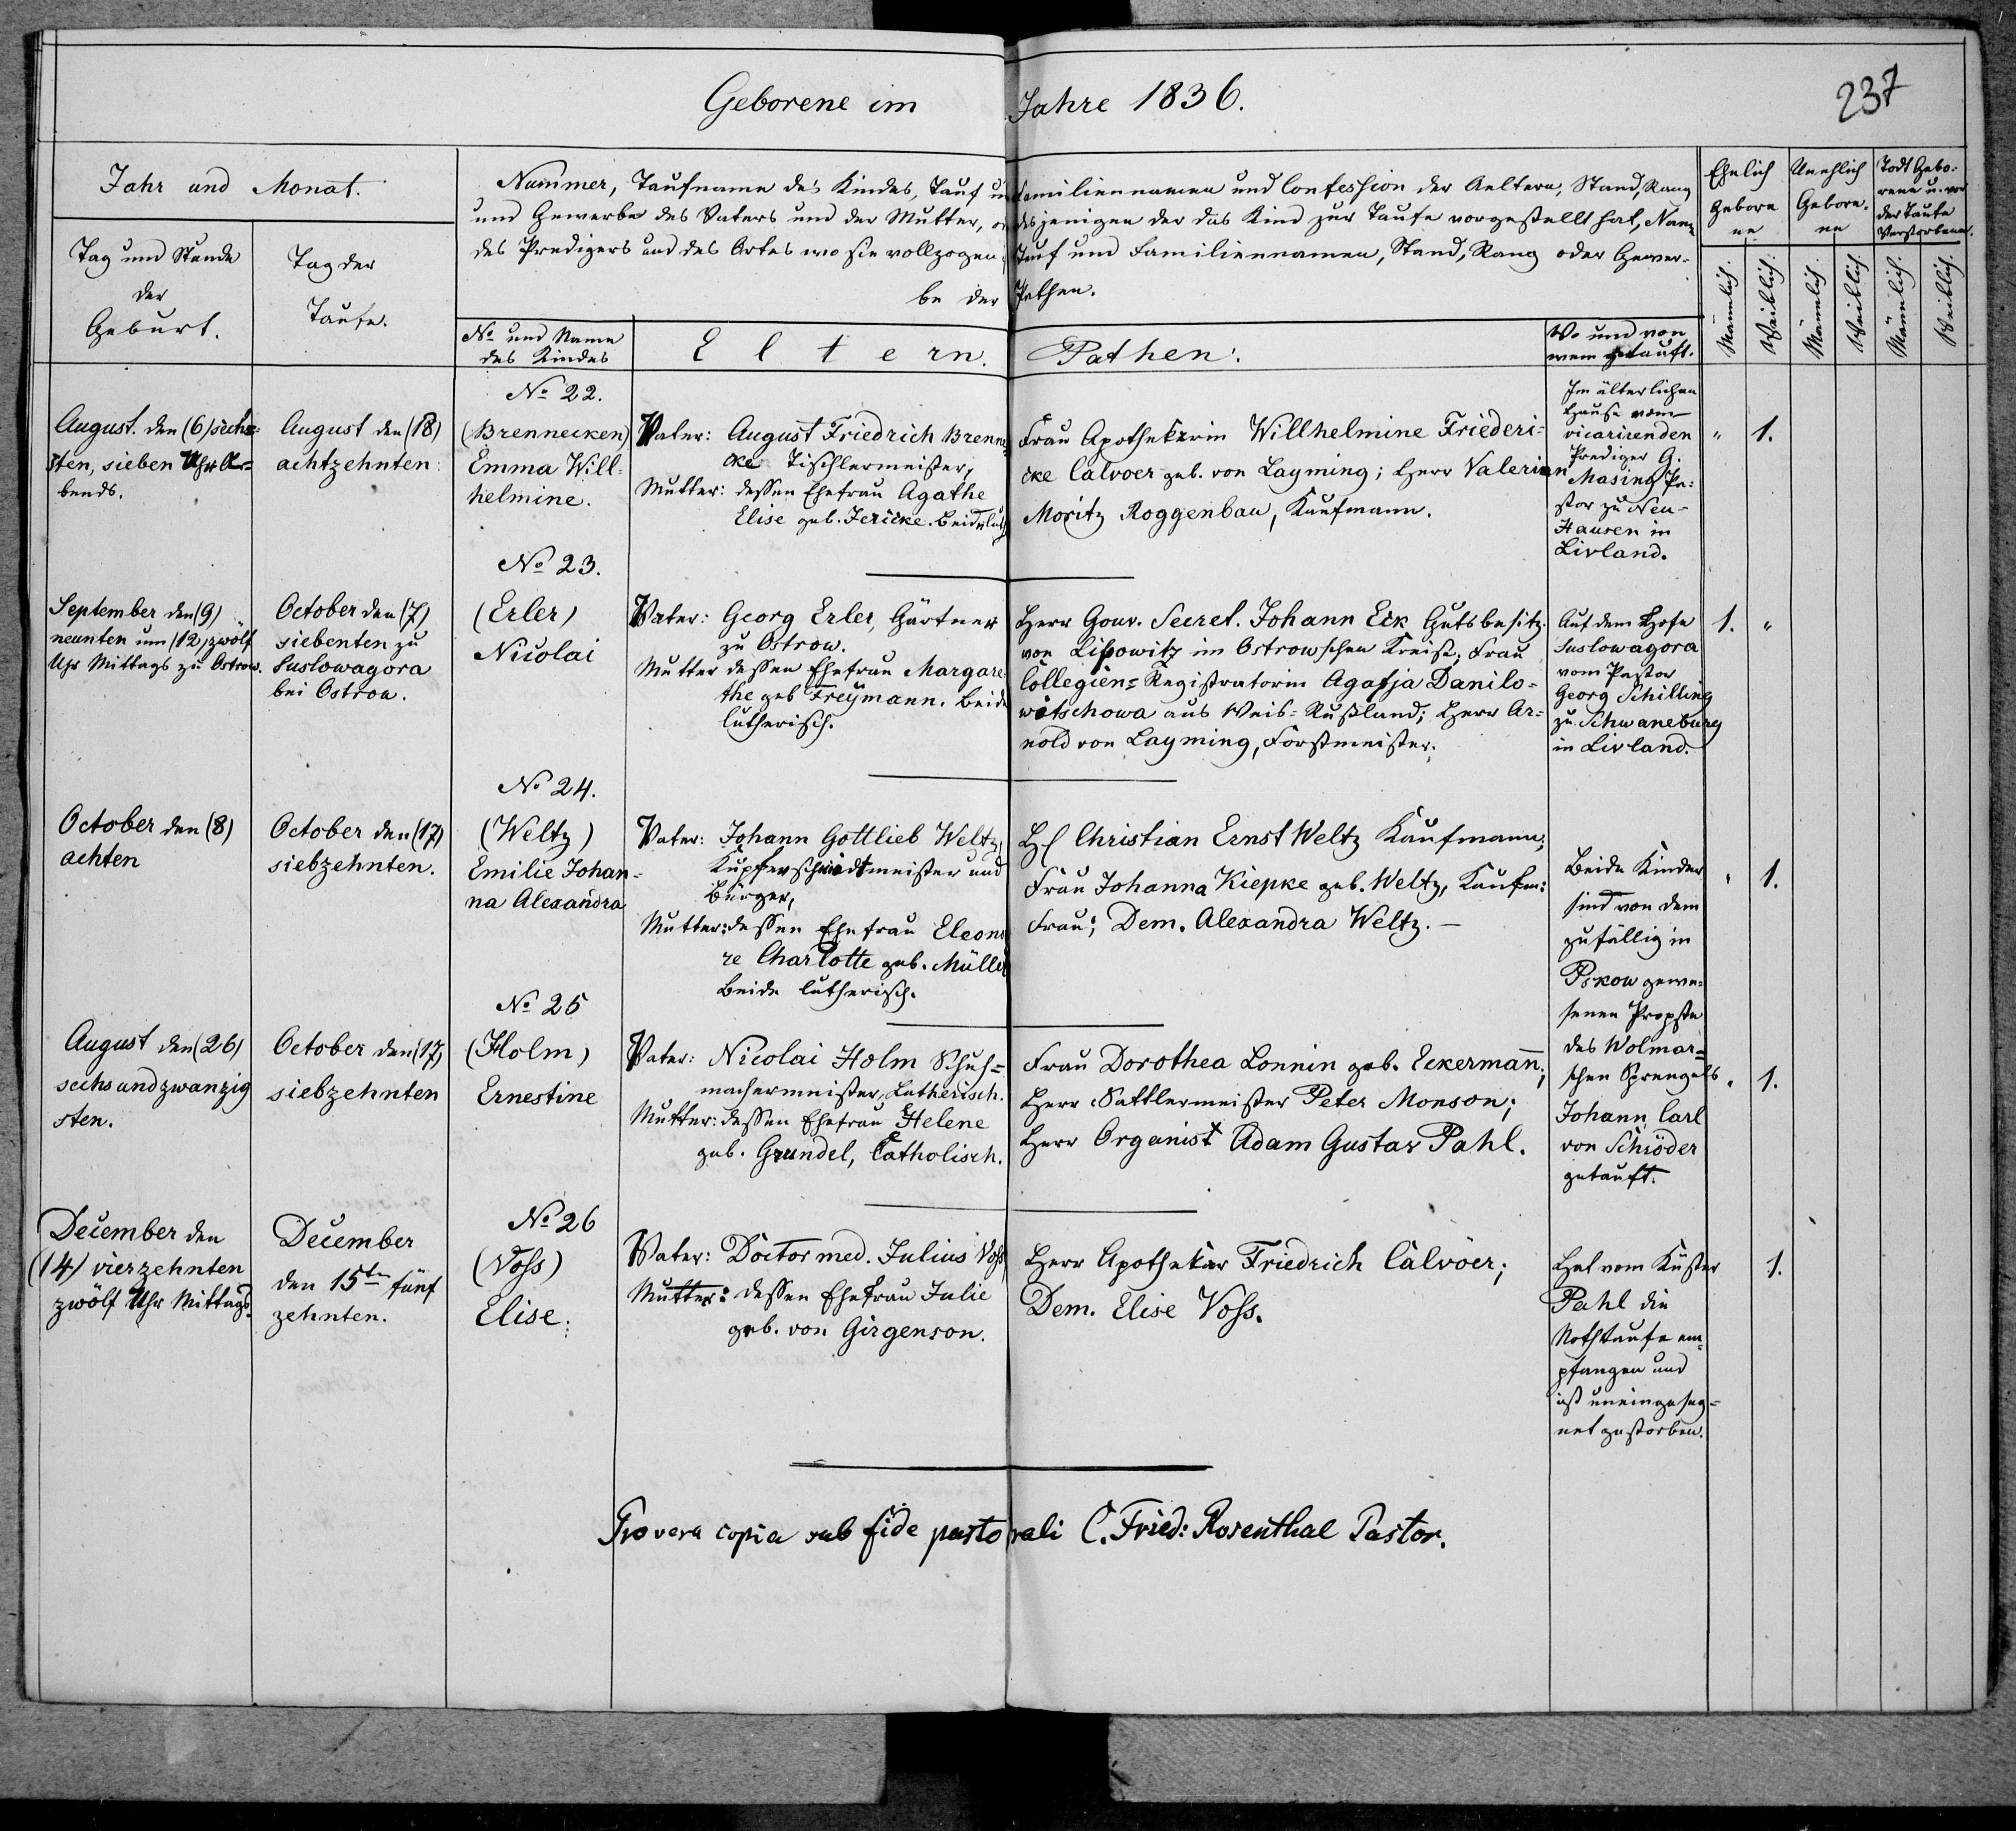 Geborene im Jahre 1836.
237
Jahr und Monat.
Tag und Stunde
der
Geburt.
Tag der
Taufe.
Nummer, Taufname des Kindes, Tauf u Familiennamen und Confession der Aeltern, Stand, Rang
und Gewerbe des Vaters und der Mutter, o desjenigen der das Kind zur Taufe vorgestellt hat, Nam=
des Predigers und des Ortes wo sie vollzogen, Tauf und Familiennamen, Stand, Rang oder Gewer=
be der Pathen.
No und Name
des Kindes
Eltern.
Pathen.
Wo und von
wem getauft.
Ehelich
Gebore
ne
Unehlich
Gebore.
ne
Todt Gebo=
rene u. vor
der Taufe
Verstorbene.
Männlich.
Weiblich.
Männlich.
Weiblich.
Männlich.
Weiblich.
No 22.
August. den (6) sechs=
sten, sieben Uhr A=
bends.
August den (18)
achtzehnten.
(Brennecken)
Emma Will=
helmine.
Vater: August Friedrich Brenne
cke Tischlermeister,
Mutter: dessen Ehefrau Agathe
Elise geb. Jericke. Beide luth
Frau Apothekerin Willhelmine Friederi=
cke Calvoer geb. von Layming; Herr Valerian
Moritz Roggenbau, Kaufmann.
Im älterlichen
Hause vom
vicarirenden
Prediger G.
Masing Pa=
stor zu Neu=
Hausen in
Livland.
" 1.
No 23.
September den (9)
neunten um (12) zwölf
Uhr Mittags zu Ostrow.
October den (7)
siebenten zu
Suslowagora
bei Ostrow.
(Erler)
Nicolai
Vater: Georg Erler, Gärtner
zu Ostrow.
Mutter dessen Ehefrau Margare
the geb Freymann. Beide
lutherisch.
Herr Gouv. Secret. Johann Eck Gutsbesitz.
von Lipowitz im Ostrowschen Kreise; Frau
Collegien=Registratorin Agafja Danilo=
witschowa aus Weis=Rußland; Herr Ar=
nold von Layming, Forstmeister.
Auf dem Hofe
Suslowagora
vom Pastor
Georg Schilling
zu Schwaneburg
in Livland.
1. "
No 24.
October den (8)
achten
October den (17)
siebzehnten.
(Weltz)
Emilie Johan=
na Alexandra
Vater: Johann Gottlieb Weltz,
Kupferschmiedtmeister und
Bürger,
Mutter: dessen Ehefrau Eleono
re Charlotte geb. Müller
Beide lutherisch.
H Christian Ernst Weltz Kaufmann;
Frau Johanna Kiepke geb. Weltz, Kaufm:
Frau; Dem. Alexandra Weltz. —
Beide Kinder
sind von dem
zufällig in
Pskow gewe=
senen Propste
des Wolmar=
schen Sprengels
Johann Carl
von Schröder
getauft.
" 1.
No 25
August den (26)
sechsundzwanzig
sten.
October den (17)
siebzehnten
(Holm)
Ernestine
Vater: Nicolai Holm Schuh=
machermeister, Lutherisch.
Mutter: dessen Ehefrau Helene
geb. Grundel, Catholisch.
Frau Dorothea Lonnin geb. Eckermann;
Herr Sattlermeister Peter Monson;
Herr Organist Adam Gustav Pahl.
" 1.
No 26
December den
(14) vierzehnten
zwölf Uhr Mittags.
December
den 15ten fünf
zehnten.
(Voss)
Elise.
Vater: Doctor med. Julius Voss,
Mutter: dessen Ehefrau Julie
geb. von Girgenson.
Herr Apotheker Friedrich Calvoer;
Dem. Elise Voss.
Hat vom Küster
Pahl die
Nothtaufe em=
pfangen und
ist uneingeseg=
net gestorben.
1.
Pro vera copia sub fide pastorali C. Fried: Rosenthal Pastor.